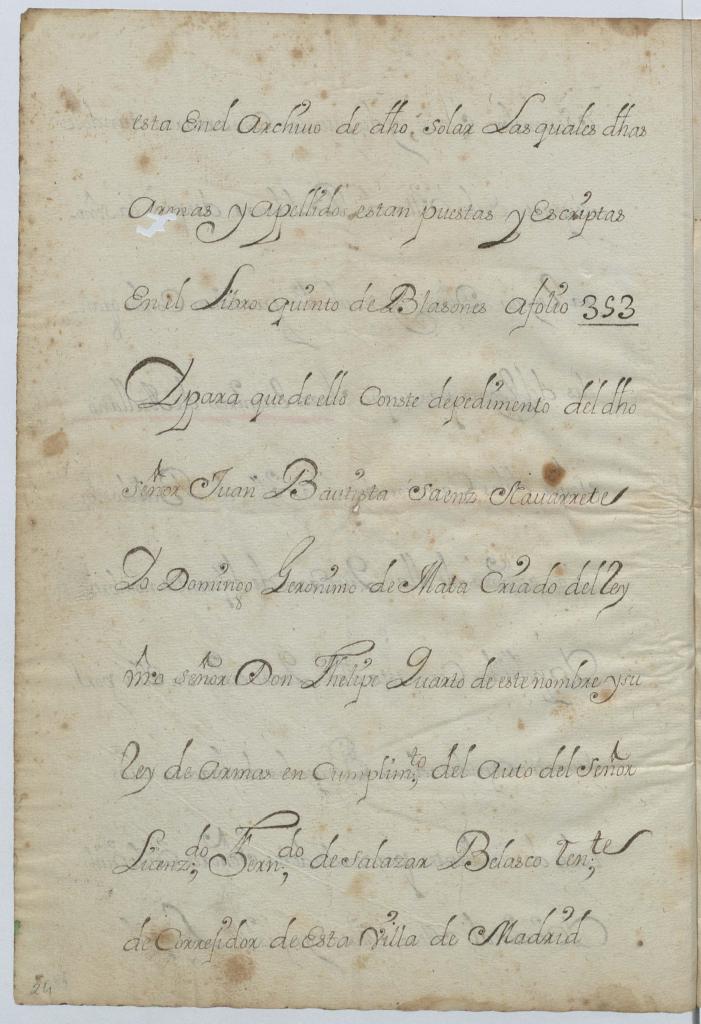 esta En el Archiuo de dho. solar Las quales dhas
Armas y Apellidos estan puestas y Escriptas
En el Libro quinto de Blasones a folio 353
Y para que de ello Conste de pedimento del dho
señor Juan Bautista Saenz Nauarrete
Yo Domingo Geronimo de Mata Criado del Rey
nro señor Don Phelipe Quarto de este nombre y su
Rey de Armas en Cumplim.to del Auto del Señor
Licenz.do Fern.do de Salazar Belasco ten.te
de Corregidor de Esta Villa de Madrid
24